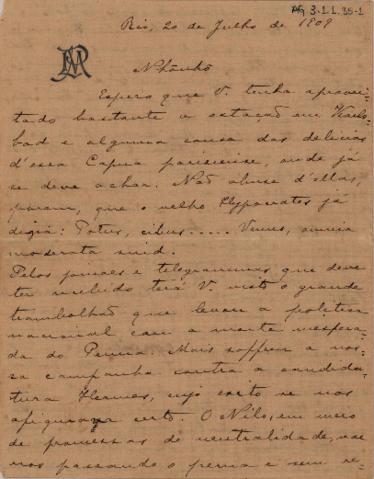 AG 3.1.1.35-1
Rio, 20 de Julho de 1909
AM
Nhônhô
Espero que V. tenha aprovei-
tado bastante a estação em Karls-
bad e alguma cousa das delicias
d'essa Capua parisiense, onde já
se deve achar. Não abuse d'ellas,
porem, que o velho Hyppocrates já
dizia: Potus, cibus..... Venus, omnia
moderata sint.
Pelos jornaes e telegrammas que deve
ter recebido terá V. visto o grande
trambolhão que levou a politica
nacional com a morte inespera-
da do Penna. Mais soffreu a nos-
sa campanha contra a candida-
tura Hermes, cujo exito se nos
afigurava certo. O Nilo, em meio
de promessas de neutralidade, vae
nos passando a perna e sem re-